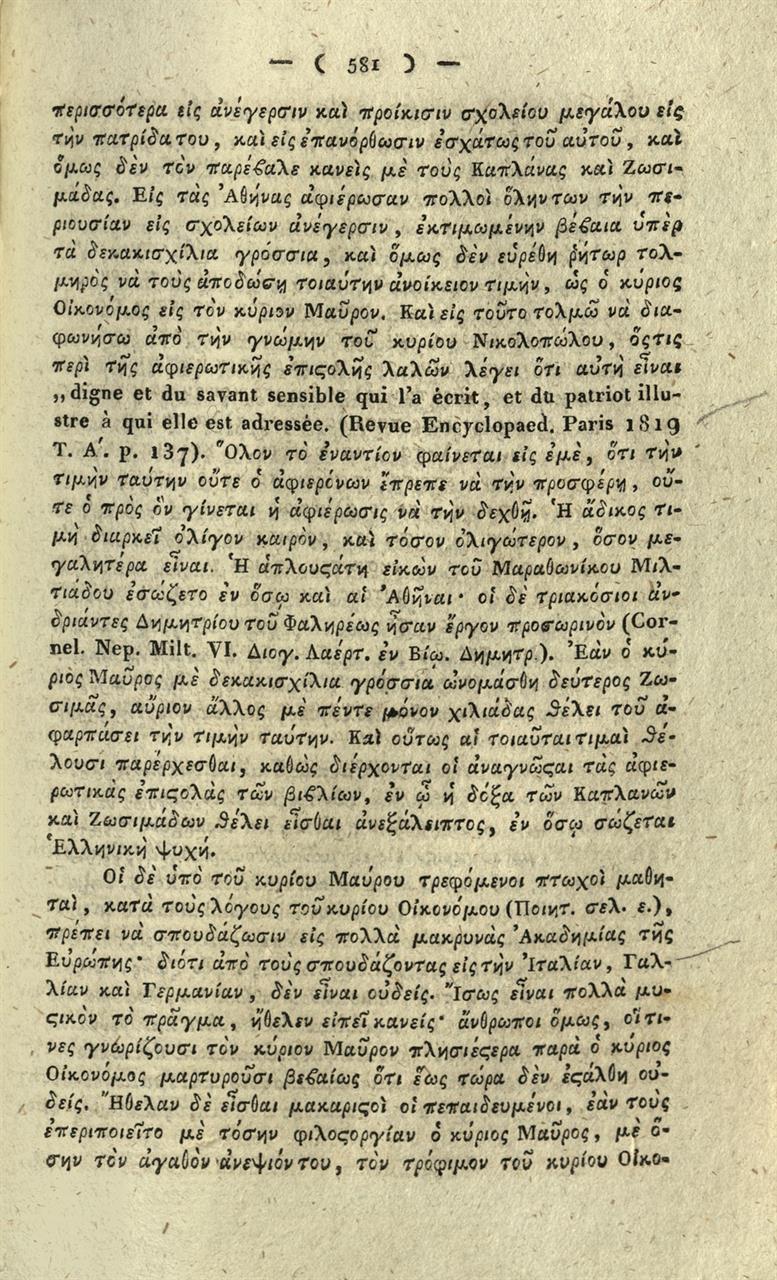 — ( 581 ) —
περισσότερα εἰς ἀνέγερσιν καὶ προίκισιν σχολείου μεγάλου εἰς
τὴν πατρίδα του, καὶ εἰς ἐπανόρθωσιν ἐσχάτως τοῦ αὐτοῦ, καὶ
ὅμως δὲν τὸν παρέβαλε κανεὶς μὲ τοὺς Καπλάνας καὶ Ζωσι-
μάδας. Εἰς τὰς Ἀθήνας ἀφιέρωσαν πολλοὶ ὅλην των τὴν πε-
ριουσίαν εἰς σχολείων ἀνέγερσιν, ἐκτιμωμένην βέβαια ὑπὲρ
τὰ δεκακισχίλια γρόσσια, καὶ ὅμως δὲν εὑρέθη ῥήτωρ τολ-
μηρὸς νὰ τοὺς ἀποδώσῃ τοιαύτην ἀνοίκειον τιμὴν, ὡς ὁ κύριος
Οἰκονόμος εἰς τὸν κύριον Μαῦρον. Καὶ εἰς τοῦτο τολμῶ νὰ δια-
φωνήσω ἀπὸ τὴν γνώμην τοῦ κυρίου Νικολοπώλου, ὅςτις
περὶ τῆς ἀφιερωτικῆς ἐπιϛολῆς λαλῶν λέγει ὅτι αὐτὴ εἶναι
„digne et du savant sensible qui l'a écrit, et du patriot illu-
stre à qui elle est adressée. (Revue Encyclopaed. Paris 1819
T. Α΄. p. 137). Ὅλον τὸ ἐναντίον φαίνεται εἰς ἐμὲ, ὅτι τὴν
τιμὴν ταύτην οὔτε ὁ ἀφιερόνων ἔπρεπε νὰ τὴν προσφέρῃ, οὔ-
τε ὁ πρὸς ὃν γίνεται ἡ ἀφιέρωσις νὰ τὴν δεχθῇ. Ἡ ἄδικος τι-
μὴ διαρκεῖ ὀλίγον καιρὸν, καὶ τόσον ὀλιγώτερον, ὅσον με-
γαλητέρα εἶναι. Ἡ ἁπλουϛάτη εἰκὼν τοῦ Μαραθωνίκου Μιλ-
τιάδου ἐσώζετο ἐν ὅσῳ καὶ αἱ Ἀθῆναι· οἱ δὲ τριακόσιοι ἀν-
δριάντες Δημητρίου τοῦ Φαληρέως ἦσαν ἔργον προσωρινὸν (Cor-
nel. Nep. Milt. VI. Διογ. Λαέρτ. ἐν Βίῳ. Δημητρ.). Ἐὰν ὁ κύ-
ριος Μαῦρος μὲ δεκακισχίλια γρόσσια ὠνομάσθη δεύτερος Ζω-
σιμᾶς, αὔριον ἄλλος μὲ πέντε μόνον χιλιάδας θέλει τοῦ ἀ-
φαρπάσει τὴν τιμὴν ταύτην. Καὶ οὕτως αἱ τοιαῦται τιμαὶ θέ-
λουσι παρέρχεσθαι, καθὼς διέρχονται οἱ ἀναγνῶϛαι τὰς ἀφιε-
ρωτικὰς ἐπιϛολὰς τῶν βιβλίων, ἐν ᾧ ἡ δόξα τῶν Καπλανῶν
καὶ Ζωσιμάδων θέλει εἶσθαι ἀνεξάλειπτος, ἐν ὅσῳ σώζεται
Ἑλληνικὴ ψυχή.
Οἱ δὲ ὑπὸ τοῦ κυρίου Μαύρου τρεφόμενοι πτωχοὶ μαθη-
ταὶ, κατὰ τοὺς λόγους τοῦ κυρίου Οἰκονόμου (Ποιητ. σελ. ε.),
πρέπει νὰ σπουδάζωσιν εἰς πολλὰ μακρυνὰς Ἀκαδημίας τῆς
Εὐρώπης· διότι ἀπὸ τοὺς σπουδάζοντας εἰς τὴν Ἰταλίαν, Γαλ-
λίαν καὶ Γερμανίαν, δὲν εἶναι οὐδείς. Ἴσως εἶναι πολλὰ μυ-
ϛικὸν τὸ πρᾶγμα, ἤθελεν εἰπεῖ κανείς· ἄνθρωποι ὅμως, οἵτι-
νες γνωρίζουσι τὸν κύριον Μαῦρον πλησιέϛερα παρὰ ὁ κύριος
Οἰκονόμος μαρτυροῦσι βεβαίως ὅτι ἕως τώρα δὲν ἐϛάλθη οὐ-
δείς. Ἤθελαν δὲ εἶσθαι μακαριϛοὶ οἱ πεπαιδευμένοι, ἐὰν τοὺς
ἐπεριποιεῖτο μὲ τόσην φιλοϛοργίαν ὁ κύριος Μαῦρος, μὲ ὅ-
σην τὸν ἀγαθὸν ἀνεψιόν του, τὸν τρόφιμον τοῦ κυρίου Οἰκο-